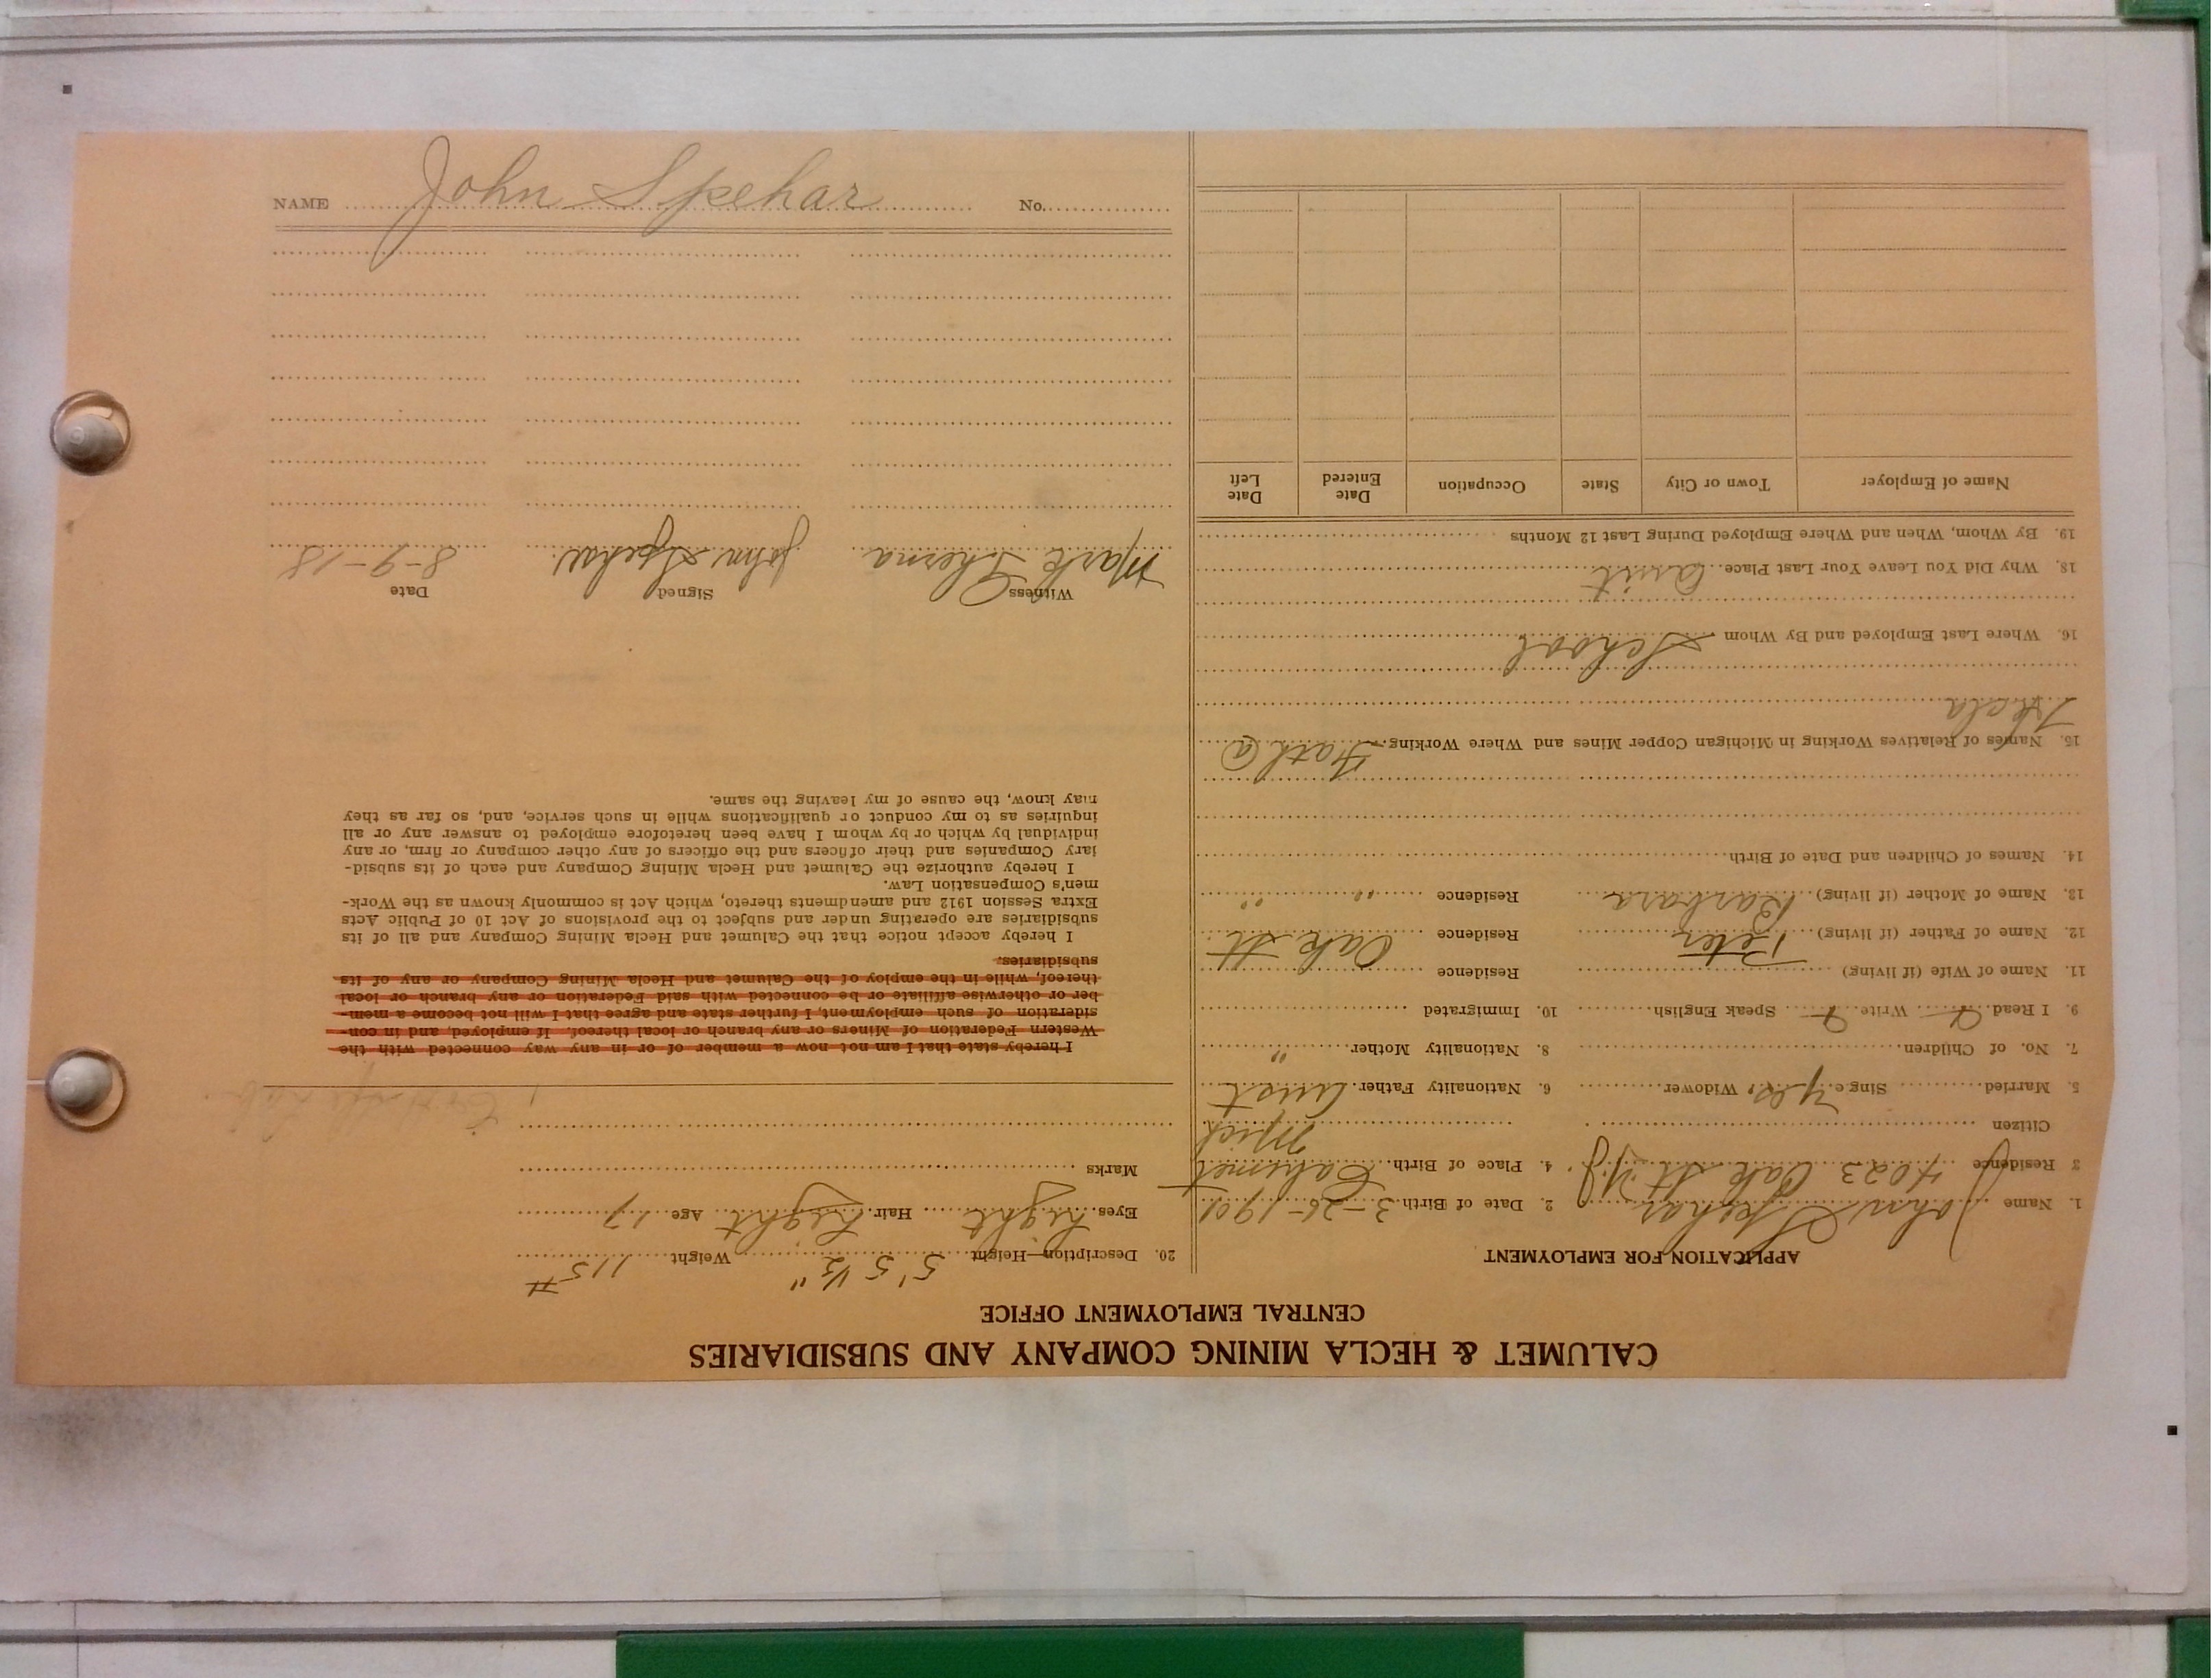 CALUMET & HECLA MINING COMPANY AND SUBSIDIARIES
CENTRAL EMPLOYMENT OFFICE
APPLICATION FOR EMPLOYMENT
1. Name John Spehar 2. Date of Birth 3-26-1901
3 Residence 4023 Oak St Y.J. 4. Place of Birth Calumet
Mich
Citizen
5. Married Single yes, Widower 6. Nationality Father Aust
7. No. of Children 8. Nationality Mother "
9. I Read Write Speak English 10. Immigrated
11. Name of Wife (if living) Residence
12. Name of Father (if living) Peter Residence Oak St
13. Name of Mother (if living) Barbara Residence " "
14. Names of Children and Date of Birth
15. Names of Relatives Working in Michigan Copper Mines and Where Working Fath @
Hecla
16. Where Last Employed and By Whom School
18. Why Did You Leave Your Last Place
19. By Whom, When and Where Employed During Last 12 Months
Name of Employer Town or City State Occupation Date Entered Date Left
20. Description—Height 5' 5 1/2" Weight 115 #
Eyes Light Hair Light Age 17
Marks
I hereby state that I am not now a member of or in any way connected with the
Western Federation of Miners or any branch or local thereof. If employed, and in con-
sideration of such employment, I further state and agree that I will not become a mem-
ber or otherwise affiliate or be connected with said Federation or any branch or local
thereof, while in the employ of the Calumet and Hecla Mining Company or any of its
subsidiaries.
I hereby accept notice that the Calumet and Hecla Mining Company and all of its
subsidiaries are operating under and subject to the provisions of Act 10 of Public Acts
Extra Session 1912 and amendments thereto, which Act is commonly known as the Work-
men's Compensation Law.
I hereby authorize the Calumet and Hecla Mining Company and each of its subsid-
iary Companies and their officers and the officers of any other company or firm, or any
individual by which or by whom I have been heretofore employed to answer any or all
inquiries as to my conduct or qualifications while in such service, and, so far as they
may know, the cause of my leaving the same.
Witness Signed Date
Mark John Spehar 8-9-18
NAME John Spehar No.